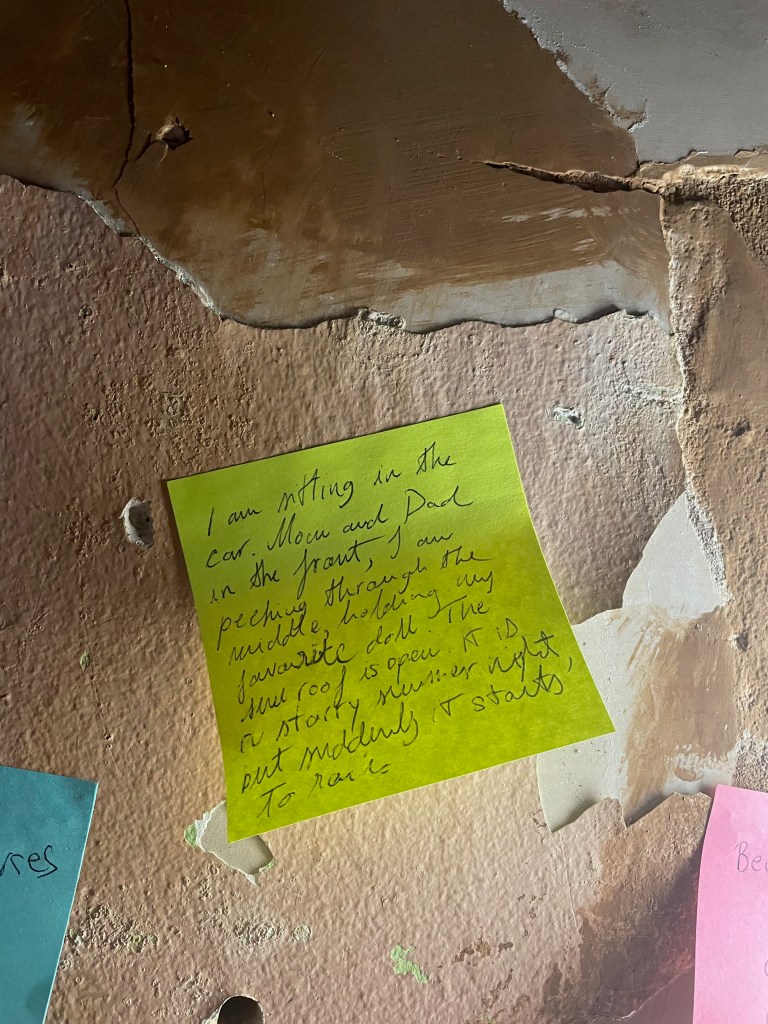 I am sitting in the
car. Mom and Dad
in the front, I am
peeking through the
middle, holding my
favourite doll. The
sun roof is open. It is
a starry summer night,
but suddenly it starts
to rain.
Bec